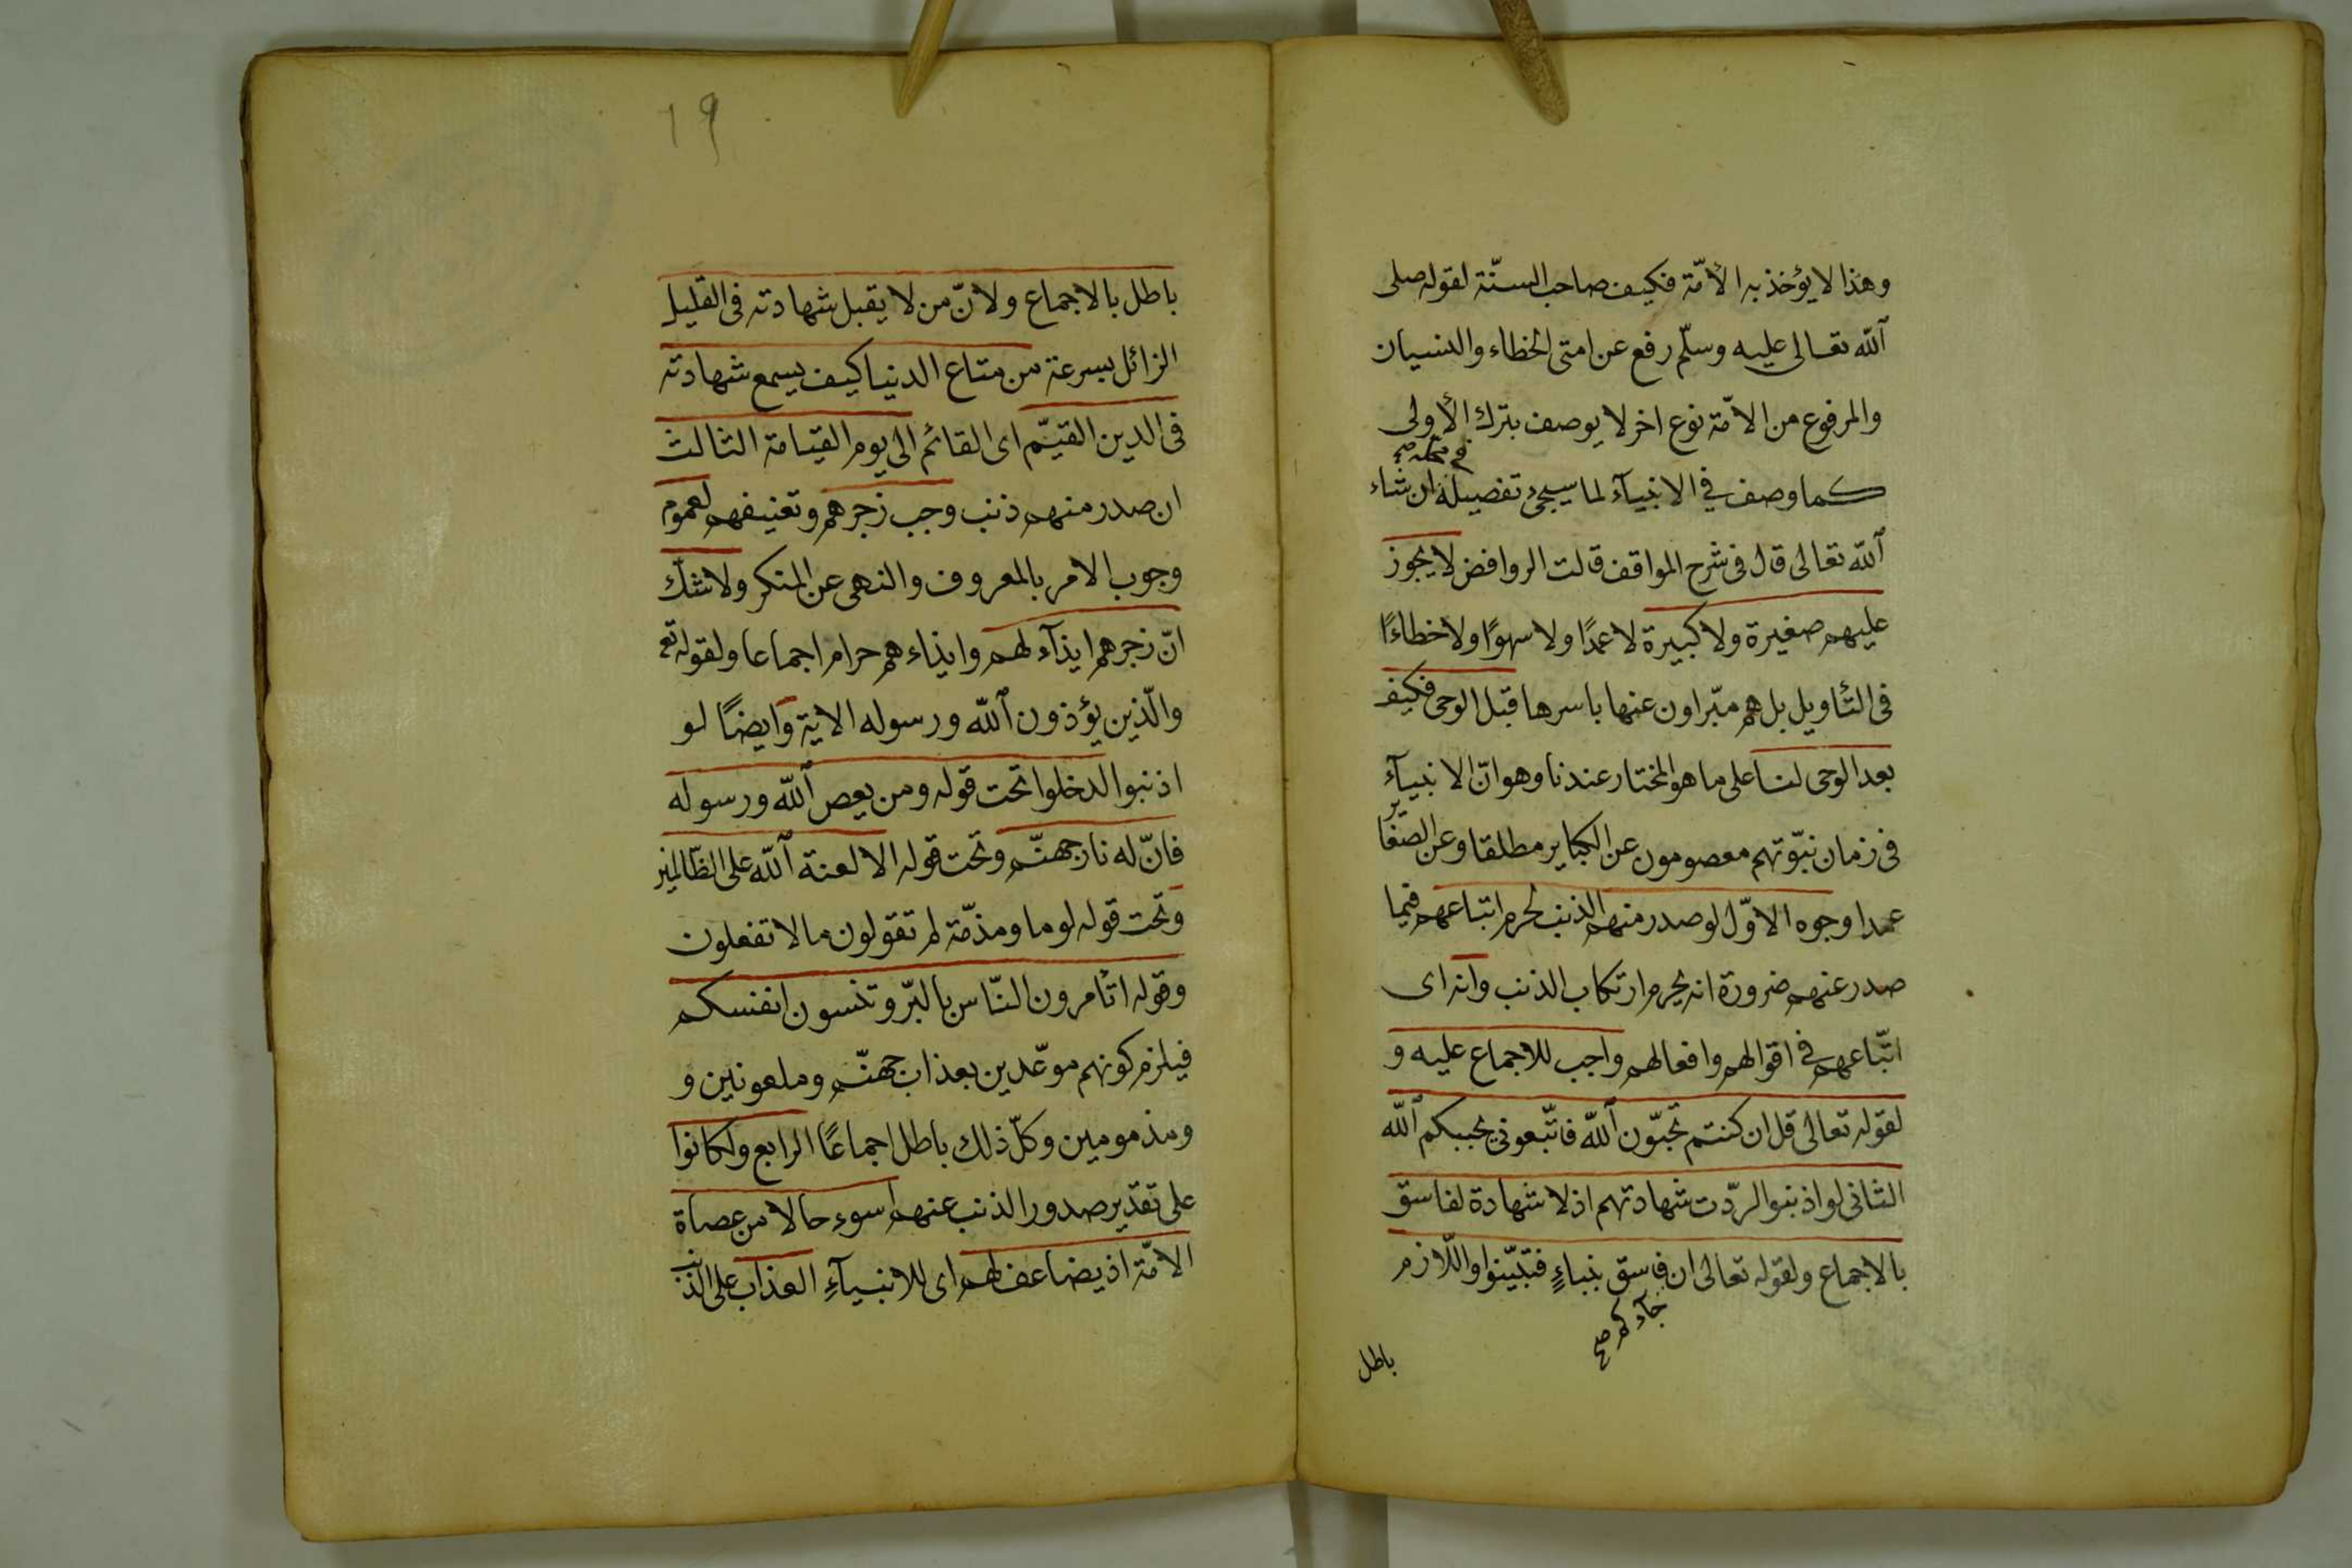 وهذا لا يؤخذ به الأمّة فكيف صاحب السنّة لقوله صلى
الله تعالى عليه وسلّم رفع عن امتى الخطاء والنسيان
والمرفوع من الامّة نوع اخر لا يوصف بترك الأولى
في محله صح
كما وصف في الانبيآء لما سيجئ تفصيله ان شاء
الله تعالى قال فى شرح المواقف قالت الروافض لا يجوز
عليهم صغيرة ولا كبيرة لا عمدًا ولا سهوًا ولا خطاءًا
فى التأويل بل هم مبّراون عنها باسرها قبل الوحى فكيف
بعد الوحى لنا على ما هو المختار عندنا وهو انّ الانبيآء
فى زمان نبّوتهم معصومون عن الكباير مطلقا وعن الصغاير
عمدا وجوه الاوّل لو صدر منهم الذنب لحرم اتباعهم فيما
صدر عنهم ضرورة انه يحرم ارتكاب الذنب وانه اى
اتّباعهم في اقوالهم وافعالهم واجب للاجماع عليه و
لقوله تعالى قل ان كنتم تحبّون الله فاتّبعونى يحببكم الله
الثانى لو اذنبوا لردّت شهادتهم اذ لا شهادة لفاسق
بالاجماع ولقوله تعالى ان فاسق بنباءٍ فتبيّنوا واللّازم
جآءكم صح
باطل
19
باطل بالاجماع ولانّ من لا يقبل شهادته فى القليل
الزائل بسرعة من متاع الدنيا كيف يسمع شهادته
فى الدين القيّم اى القائم الى يوم القيامة الثالث
ان صدر منهم ذنب وجب زجرهم وتعنيفهم لعموم
وجوب الامر بالمعروف والنهى عن المنكر ولا شكّ
انّ زجرهم ايذآء لهم وايذاءهم حرام اجماعا ولقوله تع
والّذين يؤذون الله ورسوله الاية وايضًا لو
اذنبوا لدخلوا تحت قوله ومن يعص الله ورسوله
فانّ له نار جهنّم وتحت قوله الا لعنة الله على الظالمين
وتحت قوله لوما ومذمّة لم تقولون ما لا تفعلون
وقوله اتأمرون النّاس بالبرّ وتنسون انفسكم
فيلزم كونهم موعّدين بعذاب جهنّم وملعونين و
ومذمومين وكلّ ذلك باطل اجماعًا الرابع ولكانوا
على تقدير صدور الذنب عنهم اسوء حالا من عصاة
الامّة اذ يضاعف لهم اى للانبيآءِ العذاب على الذنب